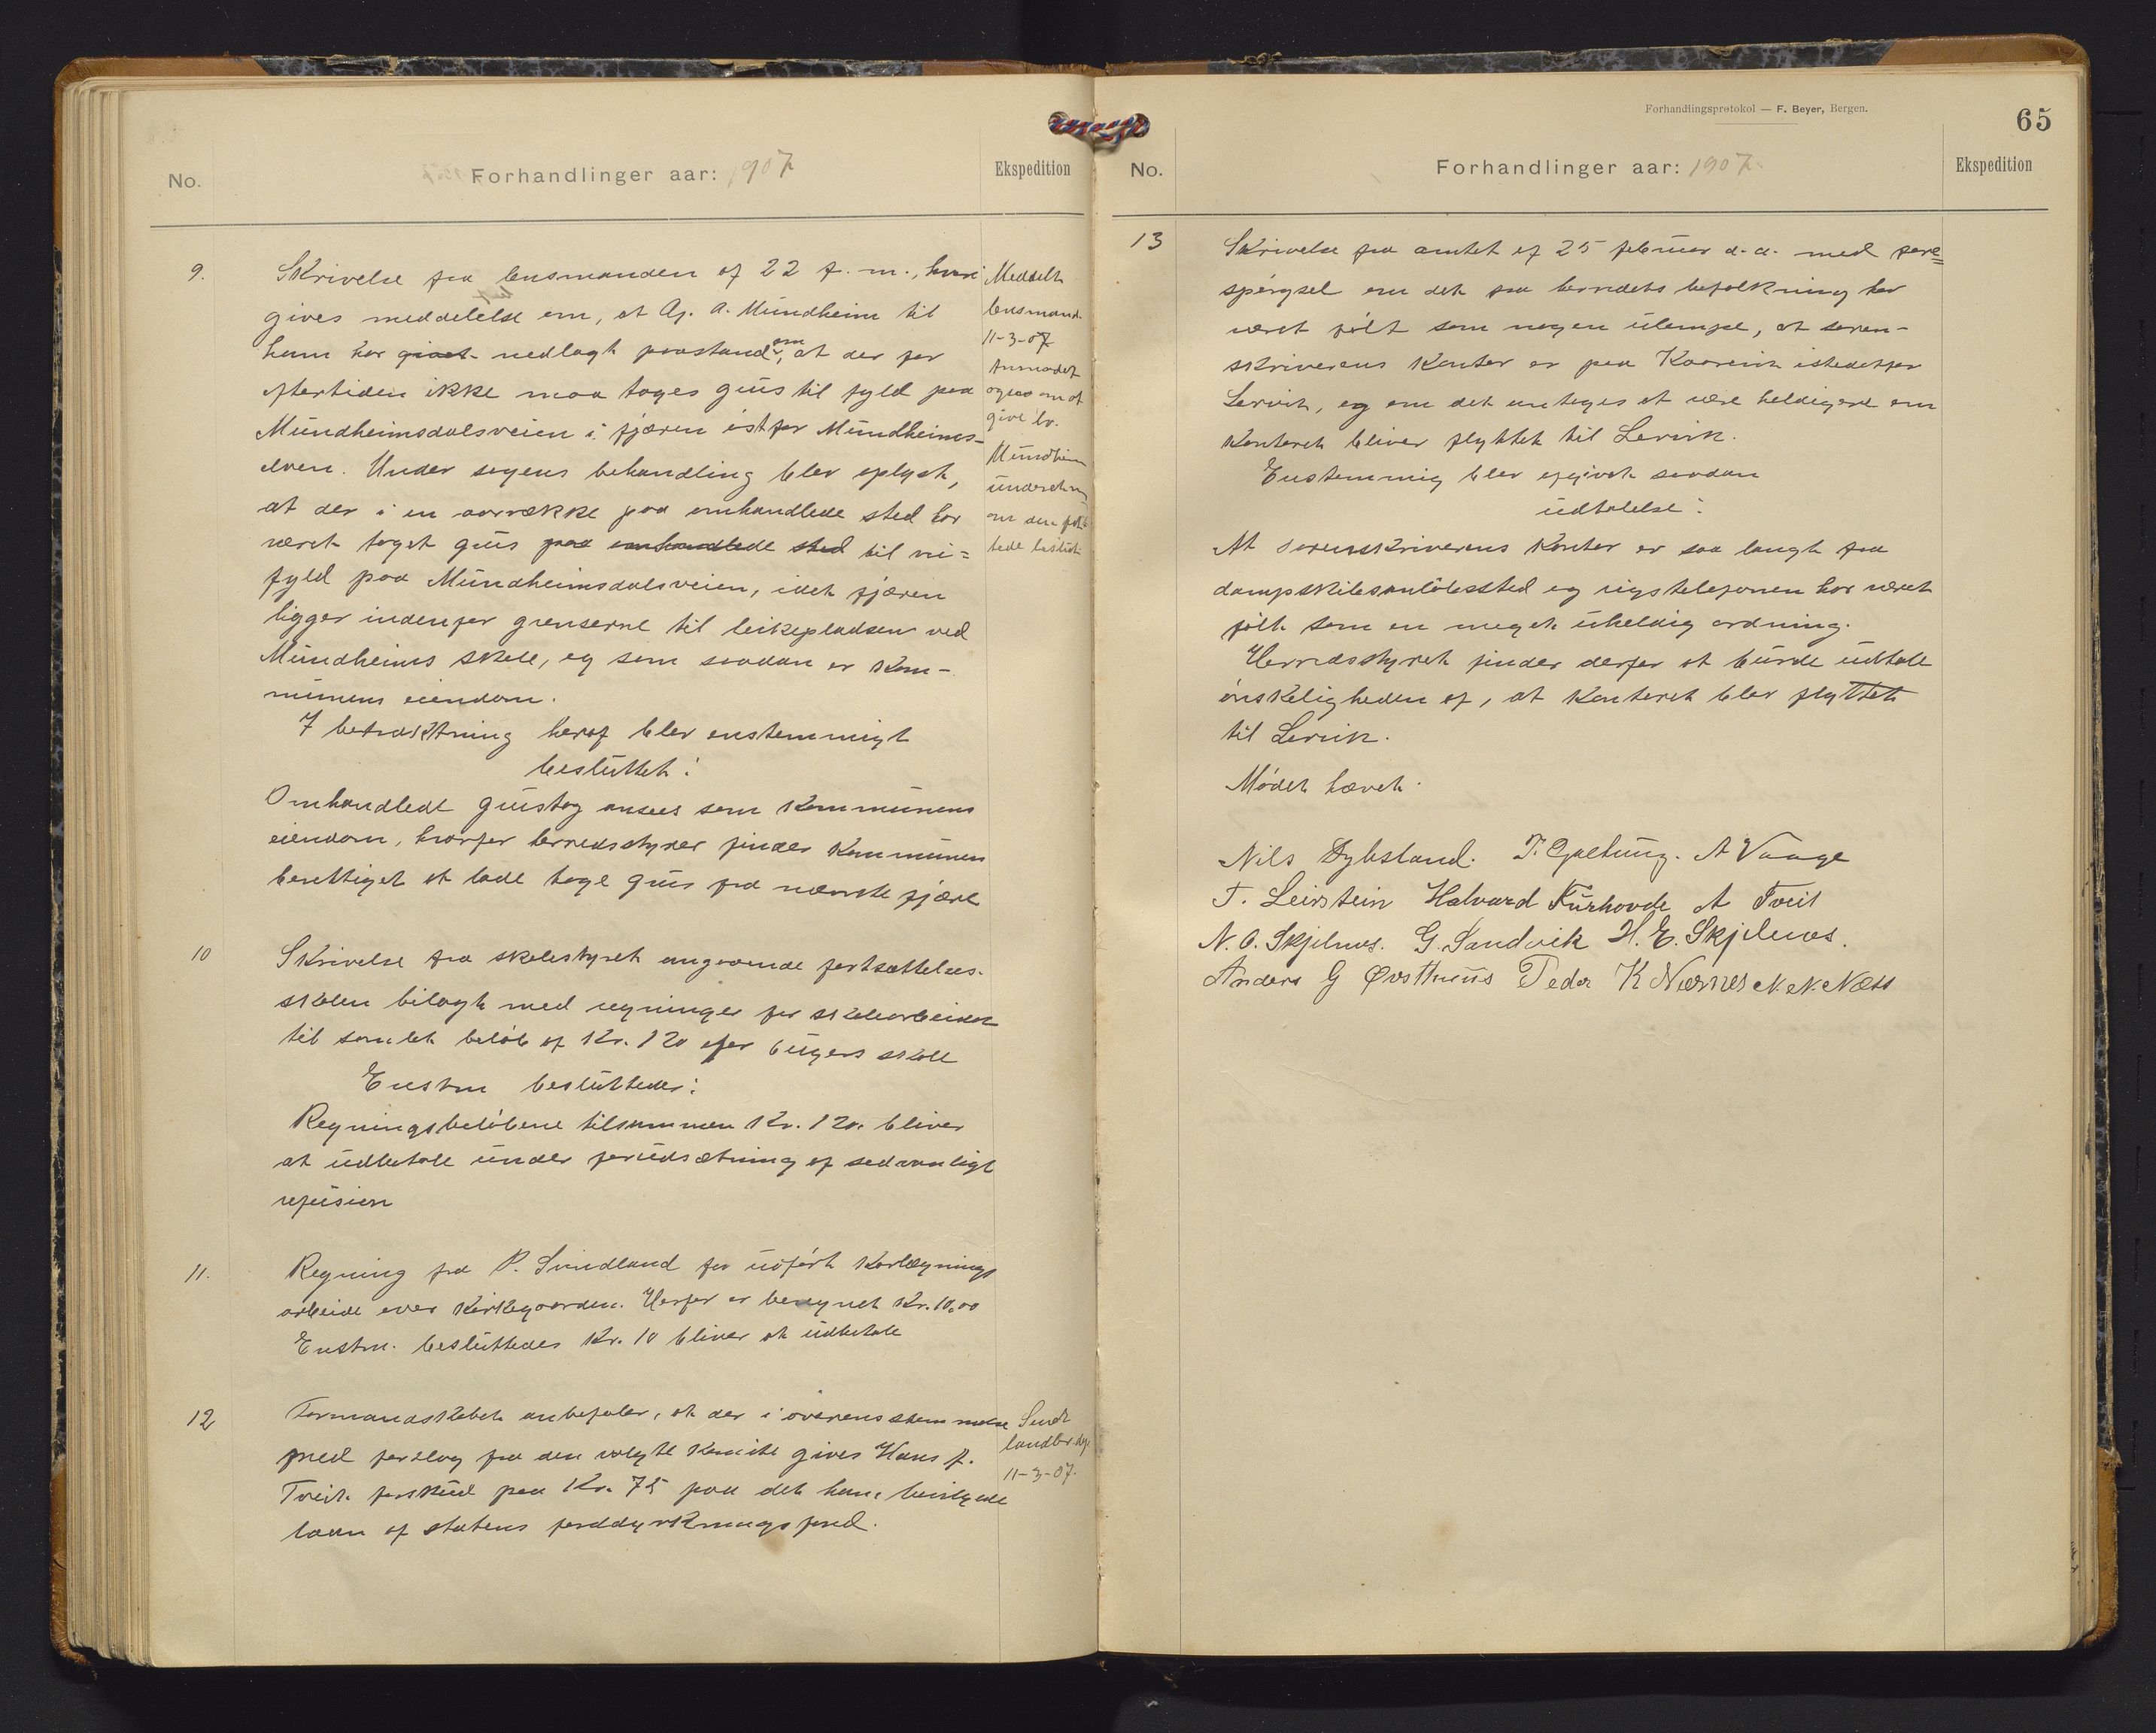 No.
Forhandlinger aar: 1907
Ekspedition
9.
Skrivelse fra lensmanden af 22 f. m., hvori
gives meddelelse om, at Aj. A. Mundheim til
ham har givet nedlagt paastand om, at der for
eftertiden ikke maa tages grus til fyld paa
Mundheimsdalsveien i fjæren østfor Mundheims-
elven. Under sagens behandling blev oplyst,
at der i en aarrække paa omhandlede sted har
været taget grus paa omhandlede sted til vei=
fyld paa Mundheimsdalsveien, idet fjæren
ligger indenfor grenserne til leikepladsen ved
Mundheims skole, og som saadan er kom-
munens eiendom.
I betraktning heraf blev enstemmigt
besluttet:
Omhandlede grustag ansees som kommunens
eiendom, hvorfor herredsstyret finder kommunen
berettiget at lade tage grus fra nævnte fjære
Meddelt
lensmand.
11-3-07
Anmodet
ogsaa om at
give hr.
Mundheim
underretning
om den fat-
tede beslut.
10
Skrivelse fra skolestyret angaaende fortsættelses-
skolen bilagt med regninger for skolearbeider
til samlet beløb af Kr. 120 skole
Enstm besluttedes:
Regningsbeløbene tilsammen Kr. 120 bliver
at udbetale under forudsætning af sedvanligt
refusion
11.
Regning fra P. Svindland for udført kartlægnings
arbeide over kirkegaarden. Herfor er beregnet Kr. 10,00
Enstm. besluttedes Kr. 10 bliver at udbetale
12
Formandskabet anbefaler, at der i overensstemmelse
med forslag fra den valgte komite gives Hans J.
Tveit forskud paa Kr. 75 paa det ham bevilgede
laan af statens jorddyrkningsfond.
Sendt
landbr. dep.
11-3-07.
Forhandlingsprotokol — F. Beyer, Bergen.
65
No.
Forhandlinger aar: 1907.
Ekspedition
13
Skrivelse fra amtet af 25 februar d. a. med fore=
spørgsel om det fra herredets befolkning har
været følt som nogen ulempe, at soren-
skriverens kontor er paa Kaarevik istedetfor
Lervik, og om det antages at være heldigere om
kontoret bliver flyttet til Lervik.
Enstemmig blev afgivet saadan
udtalelse:
At sorenskriverens kontor er saa langt fra
dampskibsanløbssted og rigstelefonen har været
følt som en meget uheldig ordning.
Herredsstyret finder derfor at burde udtale
ønskeligheden af, at kontoret blev flyttet
til Lervik.
Mødet hævet.
Nils Dybsland. T. Gjæltung. A Vaage
T. Leirstein Halvard Furhovde A Tveit
N. O. Skjelnes. G. Sandvik H. E. Skjelnes.
Anders G Øvsthuus Peder K Nernes N. N. Næss